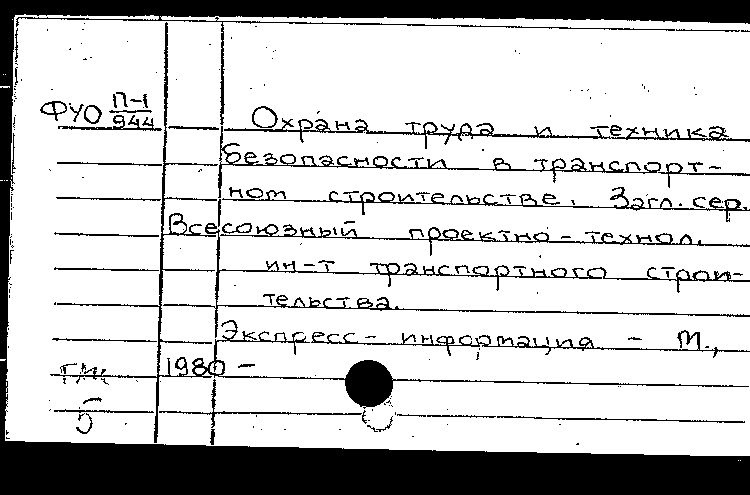 ФУО П-1
944
Охрана труда и техника
безопасности в транспорт-
ном строительстве. Загл. сер.
Всесоюзный проектно-технол.
ин-т транспортного строи-
тельства.
Экспресс-информация - М.,
1980 -
5